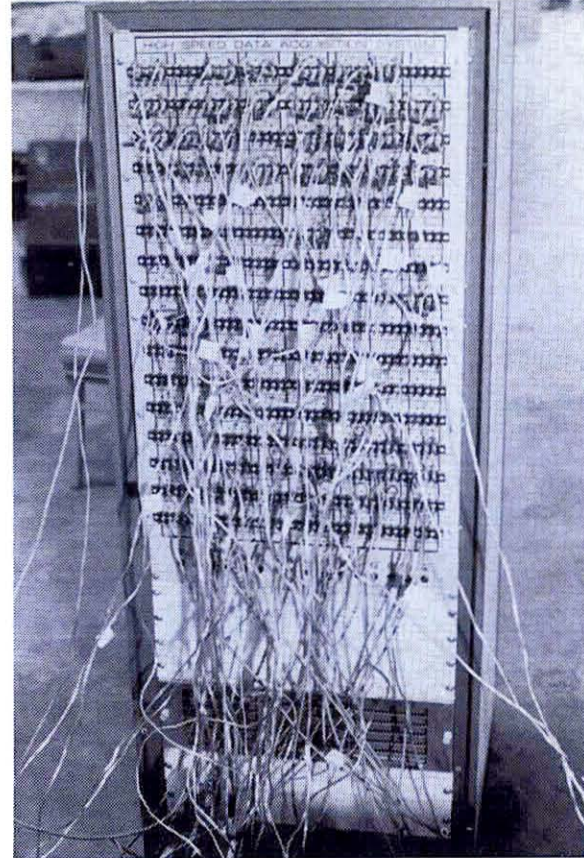 HIGH SPEED DATA ACQUISITION SYSTEM